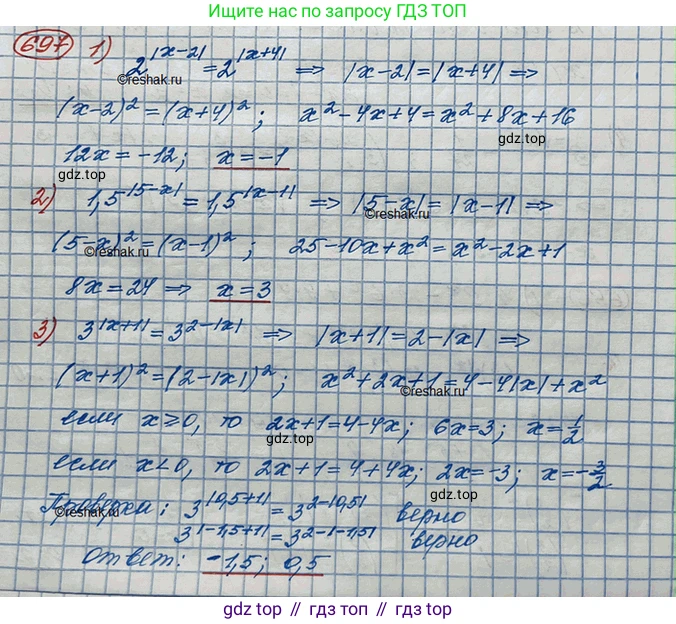 Ищите решения по запросу ГДЗ ТОП
697 1) 2^|x-2| = 2^|x+4| ⇒ |x-2| = |x+4| ⇒
©reshak.ru
(x-2)² = (x+4)²; x² - 4x + 4 = x² + 8x + 16
©reshak.ru gdz.top
12x = -12; x = -1
gdz.top
2) 1,5^|5-x| = 1,5^|x-1| ⇒ |5-x| = |x-1| ⇒
©reshak.ru
(5-x)² = (x-1)²; 25 - 10x + x² = x² - 2x + 1
©reshak.ru
8x = 24 ⇒ x = 3
3) 3^|x+1| = 3^2-|x| ⇒ |x+1| = 2-|x| ⇒
(x+1)² = (2-|x|)²; x² + 2x + 1 = 4 - 4|x| + x²
©reshak.ru
если x ≥ 0, то 2x+1 = 4-4x; 6x = 3; x = 1/2
gdz.top
если x < 0, то 2x+1 = 4+4x; 2x = -3; x = -3/2
gdz.top
Проверка: 3^|0,5+1| = 3^2-|0,5| верно
©reshak.ru
3^|-1,5+1| = 3^2-|-1,5| верно
ответ: -1,5; 0,5
gdz top // гдз топ // gdz.top